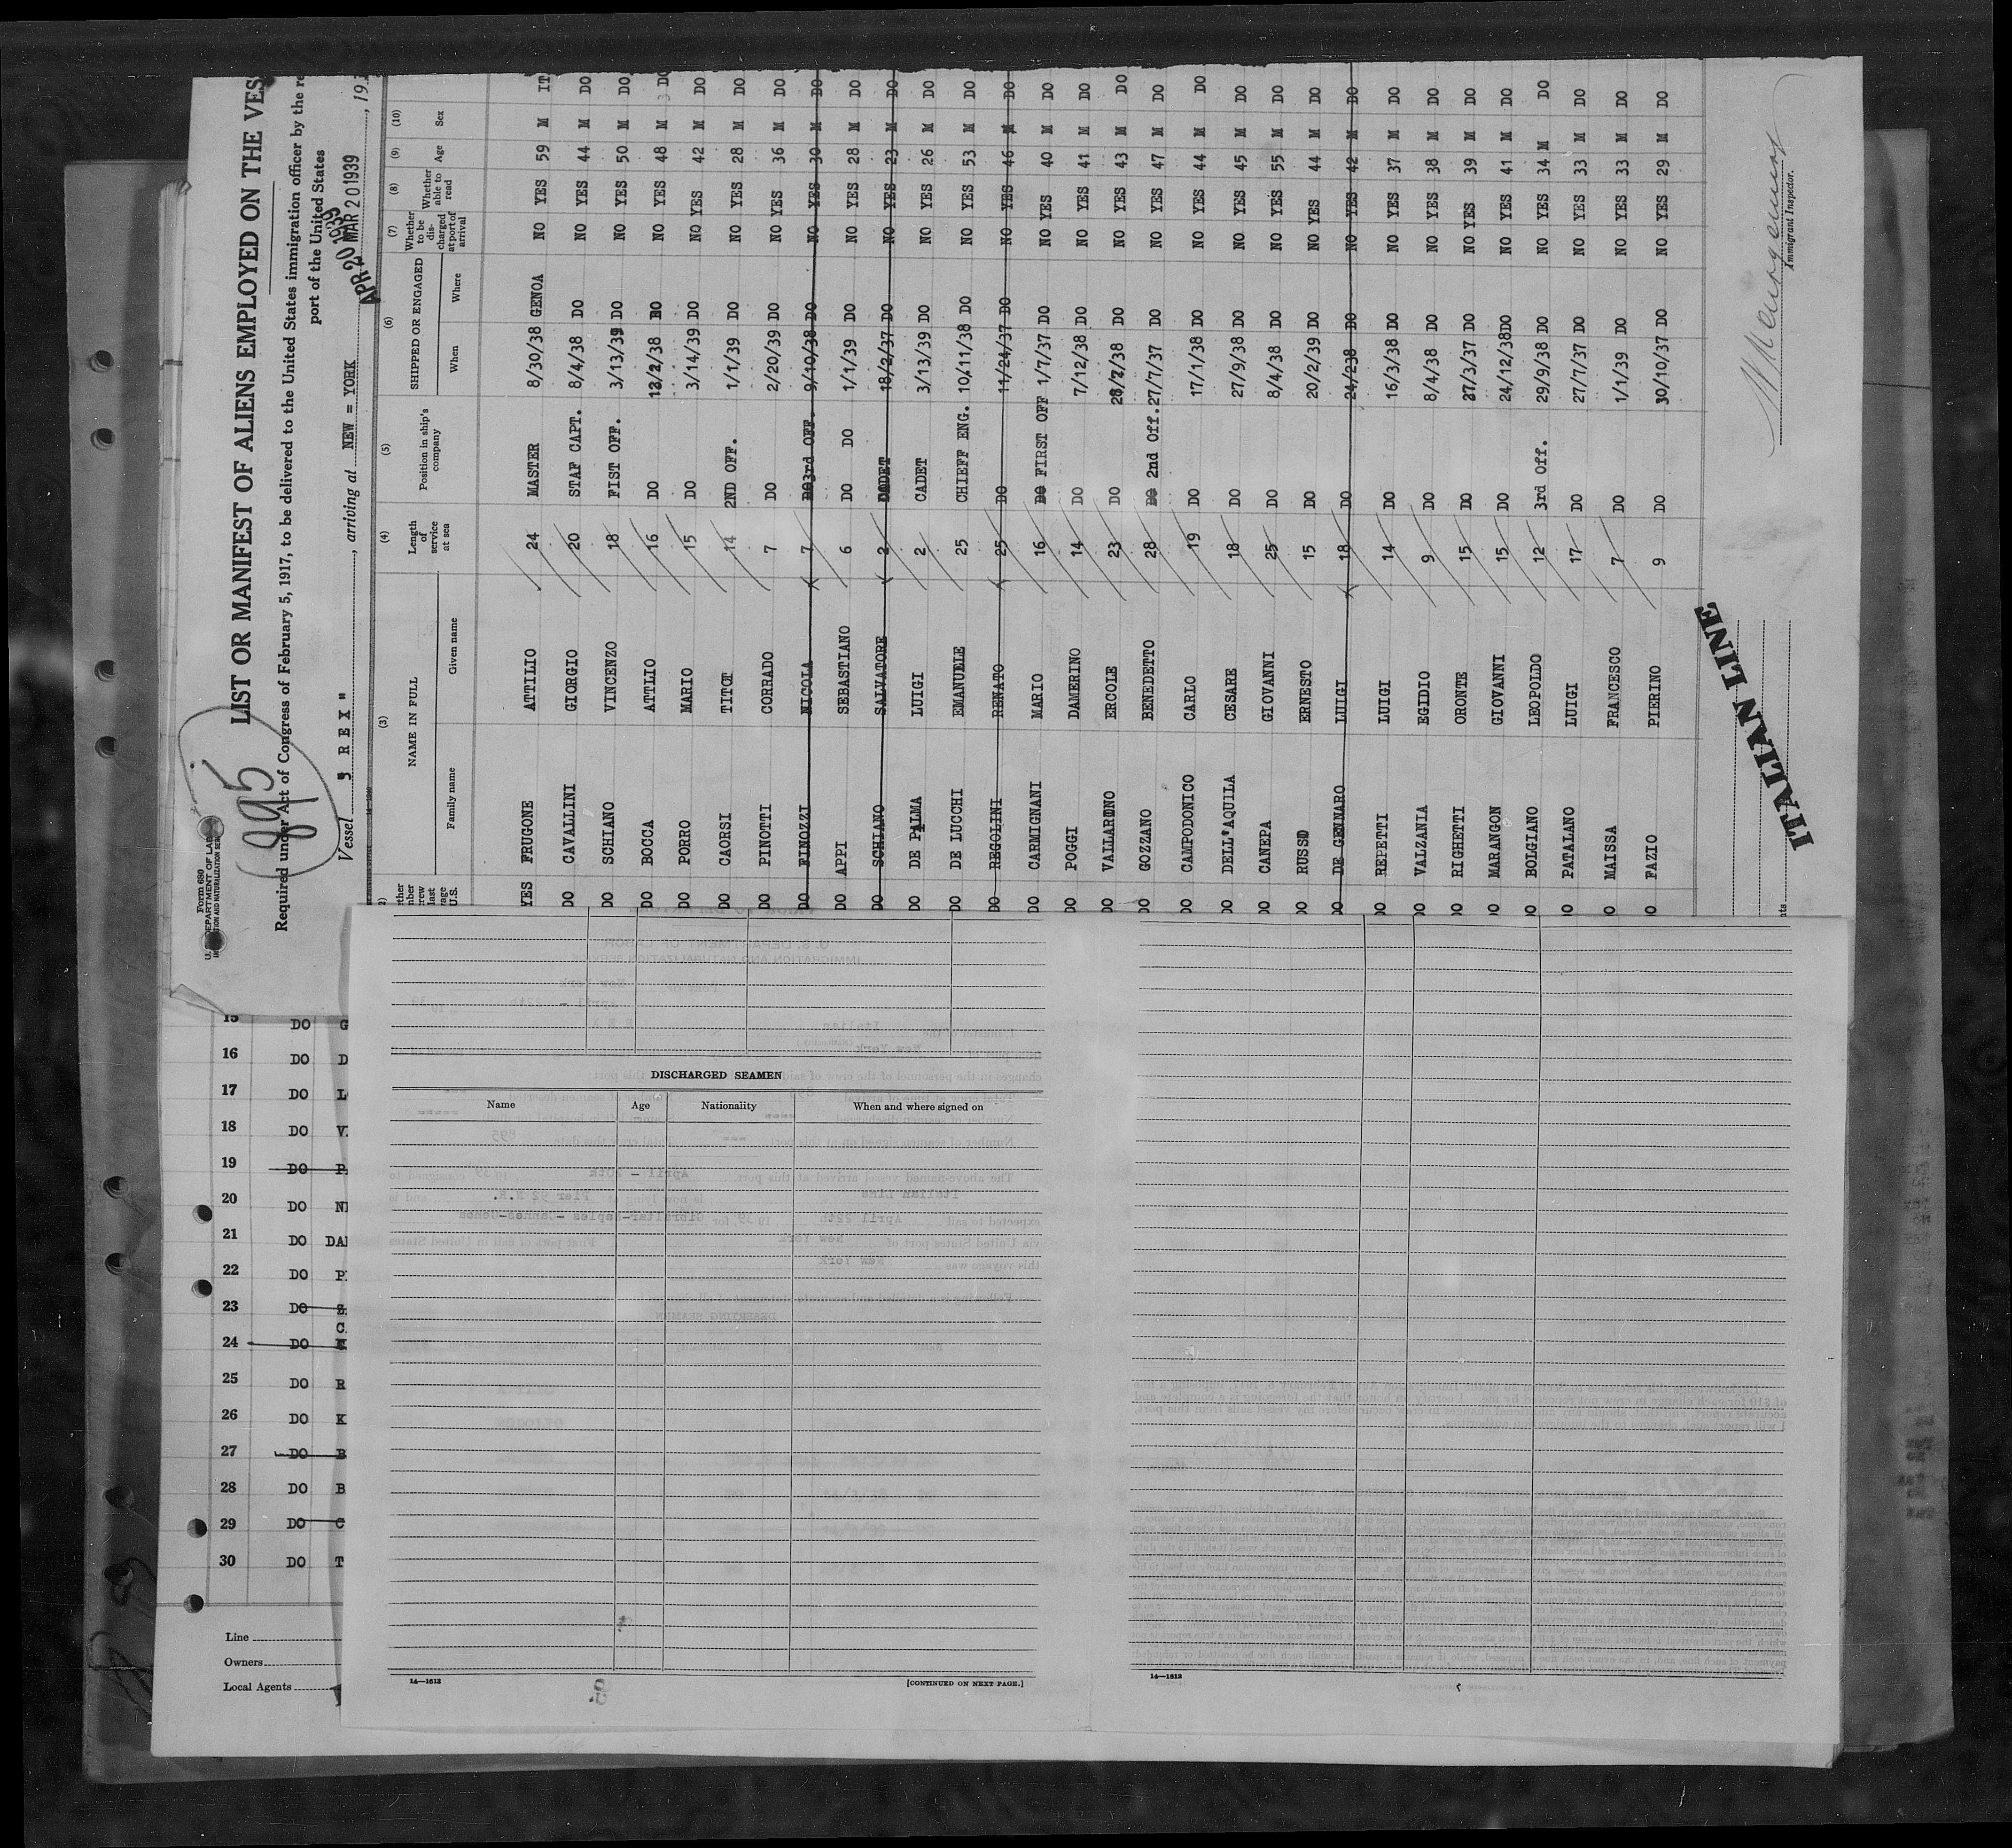 Form 680
U. S. DEPARTMENT OF LABOR
IMMIGRATION AND NATURALIZATION SERVICE
895
LIST OR MANIFEST OF ALIENS EMPLOYED ON THE VES
Required under Act of Congress of February 5, 1917, to be delivered to the United States immigration officer by the re
port of the United States
Vessel " REX ", arriving at NEW = YORK APR 20 1939 MAR 20 1939, 193
(3) (4) (5) (6) (7) (8) (9) (10)
NAME IN FULL Length of service at sea Position in ship's company SHIPPED OR ENGAGED Whether to be discharged at port of arrival Whether able to read Age Sex
Family name Given name When Where
YES FRUGONE ATTILIO 24 MASTER 8/30/38 GENOA NO YES 59 M IT
DO CAVALLINI GIORGIO 20 STAF CAPT. 8/4/38 DO NO YES 44 M DO
DO SCHIANO VINCENZO 18 FIST OFF. 3/13/39 DO NO YES 50 M DO
DO BOCCA ATTLIO 16 DO 12/2/38 DO NO YES 48 M DO
DO PORRO MARIO 15 DO 3/14/39 DO NO YES 42 M DO
DO CAORSI TITO 14 2ND OFF. 1/1/39 DO NO YES 28 M DO
DO PINOTTI CORRADO 7 DO 2/20/39 DO NO YES 36 M DO
DO FINOZZI NICOLA 7 3rd OFF. 9/10/38 DO NO YES 30 M DO
DO APPI SEBASTIANO 6 DO DO 1/1/39 DO NO YES 28 M DO
DO SCHIANO SALVATORE 2 CADET 18/2/37 DO NO YES 23 M DO
DO DE PALMA LUIGI 2 CADET 3/13/39 DO NO YES 26 M DO
DO DE LUCCHI EMANUELE 25 CHIEFF ENG. 10/11/38 DO NO YES 53 M DO
DO REGOLINI RENATO 25 DO 11/24/37 DO NO YES 46 M DO
DO CARMIGNANI MARIO 16 DO FIRST OFF 1/7/37 DO NO YES 40 M DO
DO POGGI DAMERINO 14 DO 7/12/38 DO NO YES 41 M DO
DO VALLARINO ERCOLE 23 DO 28/7/38 DO NO YES 43 M DO
DO GOZZANO BENEDETTO 28 DO 2nd Off. 27/7/37 DO NO YES 47 M DO
DO CAMPODONICO CARLO 19 DO 17/1/38 DO NO YES 44 M DO
DO DELL'AQUILA CESARE 18 DO 27/9/38 DO NO YES 45 M DO
DO CANEPA GIOVANNI 25 DO 8/4/38 DO NO YES 55 M DO
DO RUSSO ERNESTO 15 DO 20/2/39 DO NO YES 44 M DO
DO DE GENNARO LUIGI 18 DO 24/238 DO NO YES 42 M DO
DO REPETTI LUIGI 14 DO 16/3/38 DO NO YES 37 M DO
DO VALZANIA EGIDIO 9 DO 8/4/38 DO NO YES 38 M DO
DO RIGHETTI ORONTE 15 DO 27/3/37 DO NO YES 39 M DO
DO MARANGON GIOVANNI 15 DO 24/12/38 DO NO YES 41 M DO
DO BOLGIANO LEOPOLDO 12 3rd Off. 29/9/38 DO NO YES 34 M DO
DO PATALANO LUIGI 17 DO 27/7/37 DO NO YES 33 M DO
DO MAISSA FRANCESCO 7 DO 1/1/39 DO NO YES 33 M DO
DO FAZIO PIERINO 9 DO 30/10/37 DO NO YES 29 M DO
ITALIAN LINE
Immigrant Inspector.
15 DO G
16 DO D
17 DO L
18 DO V
19 DO P
20 DO NI
21 DO DA
22 DO P
23 DO
C
24 DO
25 DO R
26 DO K
27 DO B
28 DO B
29 DO C
30 DO T
Line
Owners
Local Agents
DISCHARGED SEAMEN
Name Age Nationality When and where signed on
14—1612
[CONTINUED ON NEXT PAGE.]
14—1612